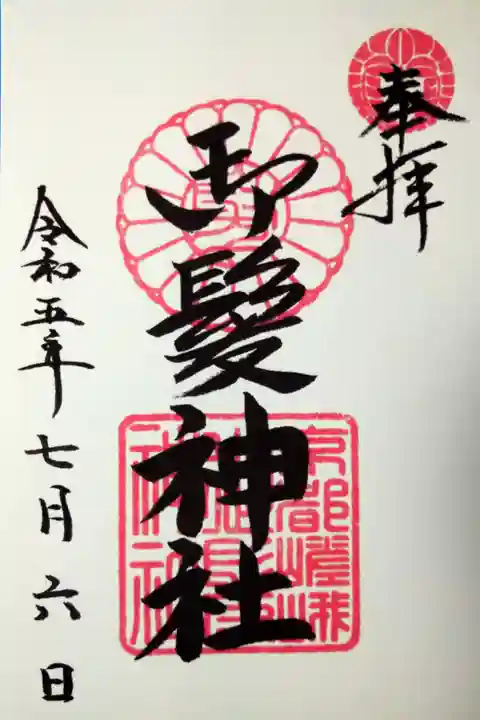 奉拝
御髪神社
京都嵯峨
令和五年七月六日